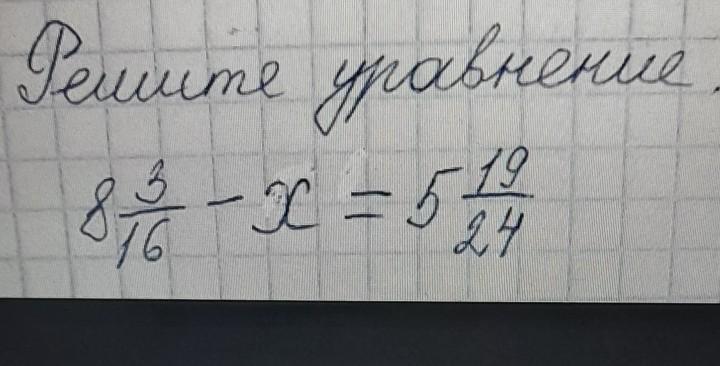 Решите уравнение.
8 3/16 - x = 5 19/24